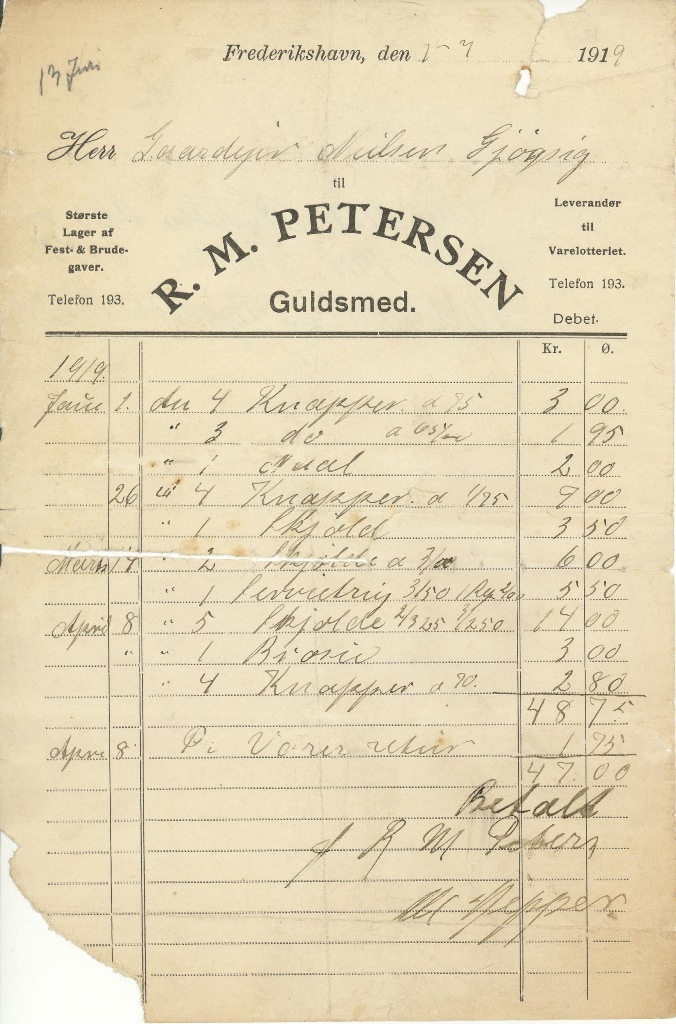 13 Juni
Frederikshavn, den 1919
Herr Gaardejer Nielsen Gjøgsig
til
Største
Lager af
Fest- & Brude-
gaver.
Telefon 193.
R. M. PETERSEN
Guldsmed.
Leverandør
til
Varelotteriet.
Telefon 193.
Debet.
Kr. Ø.
1919.
1. 4 Knapper a 75 3 00
" 3 do a 65 1 95
" 1 Naal 2 00
26 " 4 Knapper a 1/75 7 00
" 1 Skjold 3 50
Marts 17 " 2 Skjolde a 3/00 6 00
" 1 Servietring 3/50 5 50
April 8 " 5 Skjolde 2/325 3/250 14 00
" " 1 Broche 3 00
" 4 Knapper a 70. 2 80
48 75
April 8 Pr Varer retur 1 75
47 00
Betalt
R M Petersen